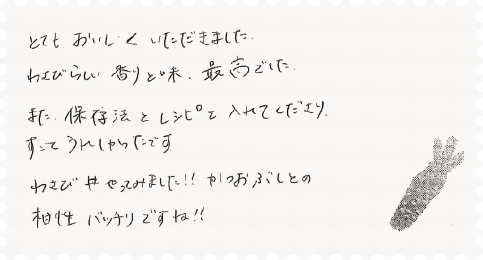 とても おいしく いただきました.
わさびらしい 香りと味、最高でした.
また. 保存法と レシピも 入れてくださり.
すごく うれしかったです
わさび丼 やってみました!! かつおぶしとの
相性 バッチリですね!!